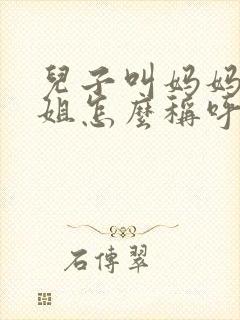 兒子叫妈妈
姐怎麼稱呼
石傳翠